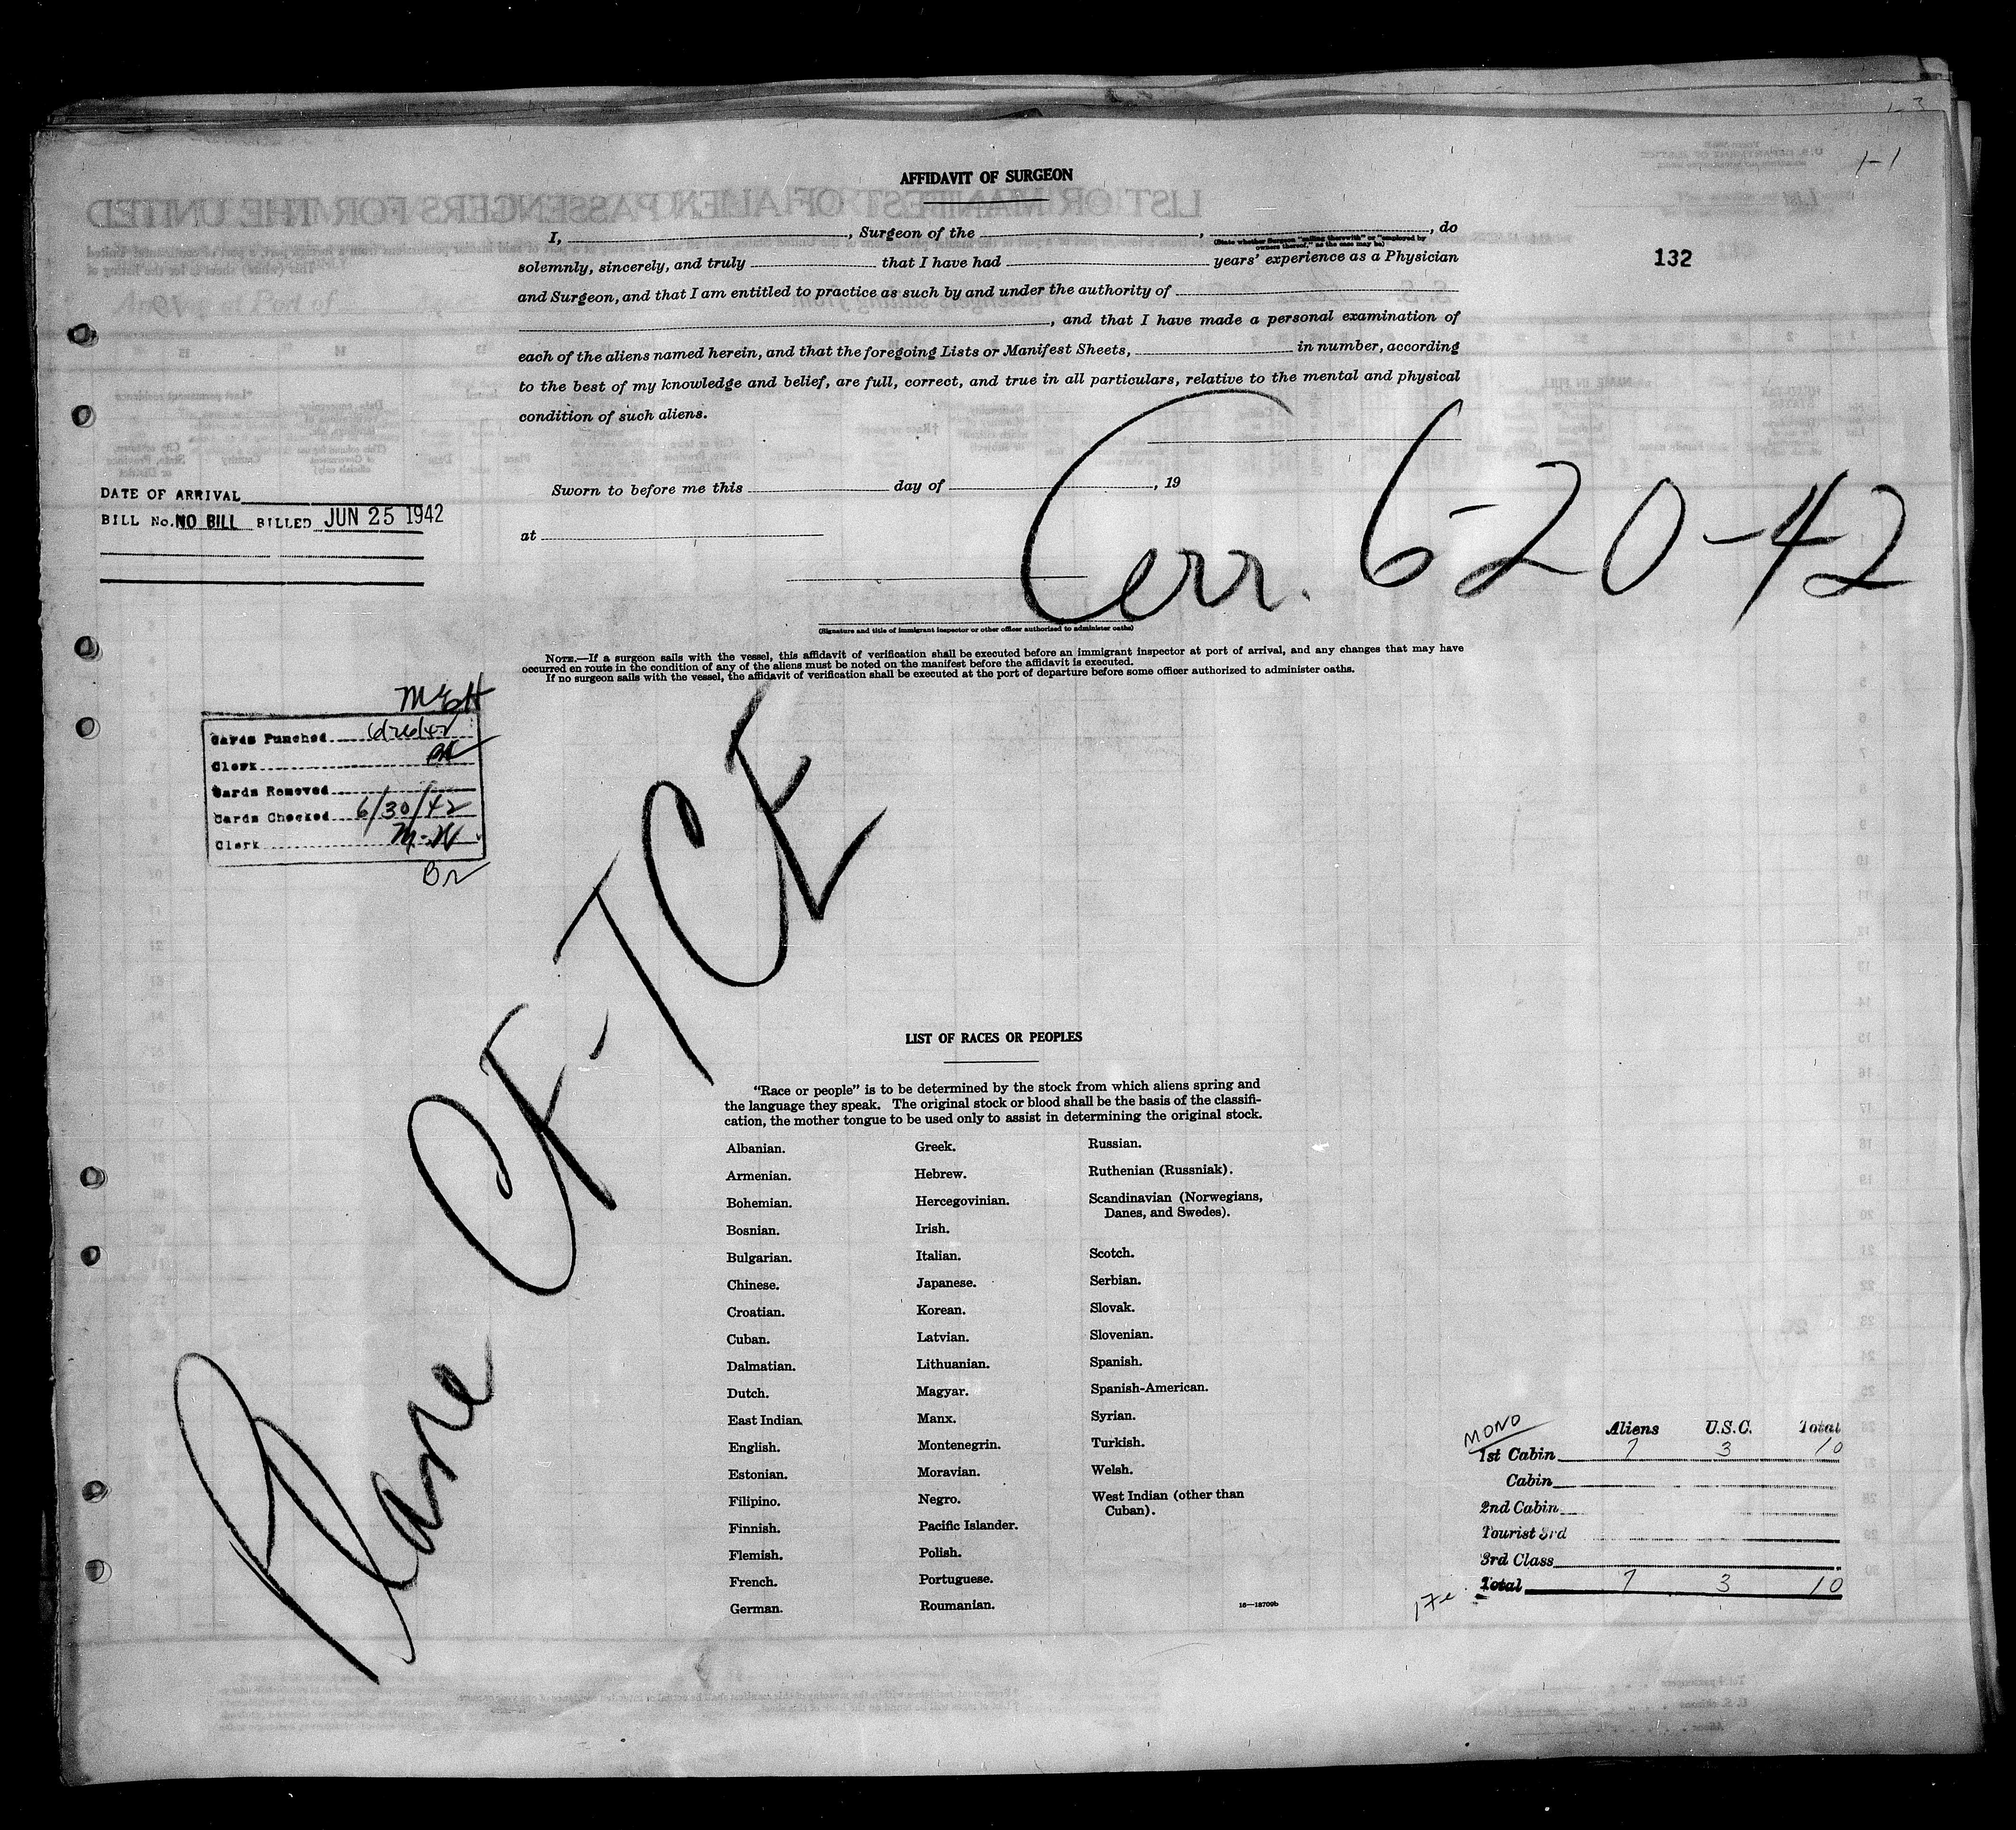 1-3
1-1
AFFIDAVIT OF SURGEON
I, , Surgeon of the , , do
(State whether Surgeon "sailing therewith" or "employed by owners thereof," as the case may be)
132
solemnly, sincerely, and truly that I have had years' experience as a Physician
and Surgeon, and that I am entitled to practice as such by and under the authority of
, and that I have made a personal examination of
each of the aliens named herein, and that the foregoing Lists or Manifest Sheets, in number, according
to the best of my knowledge and belief, are full, correct, and true in all particulars, relative to the mental and physical
condition of such aliens.
Sworn to before me this day of , 19
at
6-20-42
DATE OF ARRIVAL
BILL No. NO BILL BILLED JUN 25 1942
(Signature and title of immigrant inspector or other officer authorized to administer oaths)
NOTE.—If a surgeon sails with the vessel, this affidavit of verification shall be executed before an immigrant inspector at port of arrival, and any changes that may have
occurred en route in the condition of any of the aliens must be noted on the manifest before the affidavit is executed.
If no surgeon sails with the vessel, the affidavit of verification shall be executed at the port of departure before some officer authorized to administer oaths.
Cards Punched 6/26/42
Clerk
Cards Removed
Cards Checked 6/30/42
Clerk
Plane CF-TCE
LIST OF RACES OR PEOPLES
"Race or people" is to be determined by the stock from which aliens spring and
the language they speak. The original stock or blood shall be the basis of the classifi-
cation, the mother tongue to be used only to assist in determining the original stock.
Albanian.
Armenian.
Bohemian.
Bosnian.
Bulgarian.
Chinese.
Croatian.
Cuban.
Dalmatian.
Dutch.
East Indian.
English.
Estonian.
Filipino.
Finnish.
Flemish.
French.
German.
Greek.
Hebrew.
Hercegovinian.
Irish.
Italian.
Japanese.
Korean.
Latvian.
Lithuanian.
Magyar.
Manx.
Montenegrin.
Moravian.
Negro.
Pacific Islander.
Polish.
Portuguese.
Roumanian.
Russian.
Ruthenian (Russniak).
Scandinavian (Norwegians,
Danes, and Swedes).
Scotch.
Serbian.
Slovak.
Slovenian.
Spanish.
Spanish-American.
Syrian.
Turkish.
Welsh.
West Indian (other than
Cuban).
16—18709b
MONO
Aliens U.S.C. Total
1st Cabin 7 3 10
Cabin
2nd Cabin
Tourist 3rd
3rd Class
Total 7 3 10